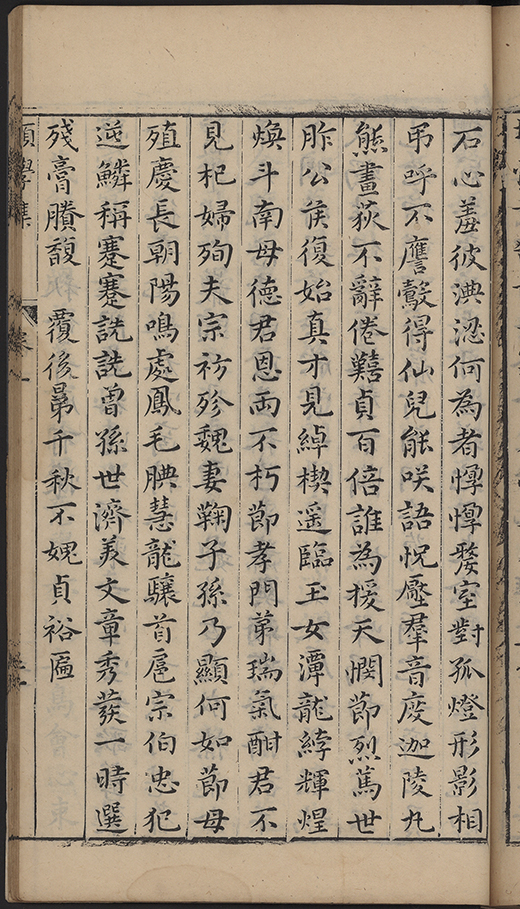 石心羞彼淟涊何為者惸惸嫠室對孤燈形影相
弔呼不譍鷇得仙兒能咲語怳壓羣音度迦陵丸
熊畫荻不辭倦囏貞百倍誰為援天憫節烈篤世
胙公矦復始真才見綽楔遥臨玉女潭龍綍輝煌
煥斗南母德君恩兩不朽節孝門苐瑞氣酣君不
見杞婦殉夫宗祊殄魏妻鞠子孫乃顯何如節母
殖慶長朝陽鳴處鳳毛腆慧龍驤首扈宗伯忠犯
逆鱗稱蹇蹇詵詵曾孫世濟羙文章秀發一時選
殘膏賸馥覆後曓千秋不媿貞裕匾